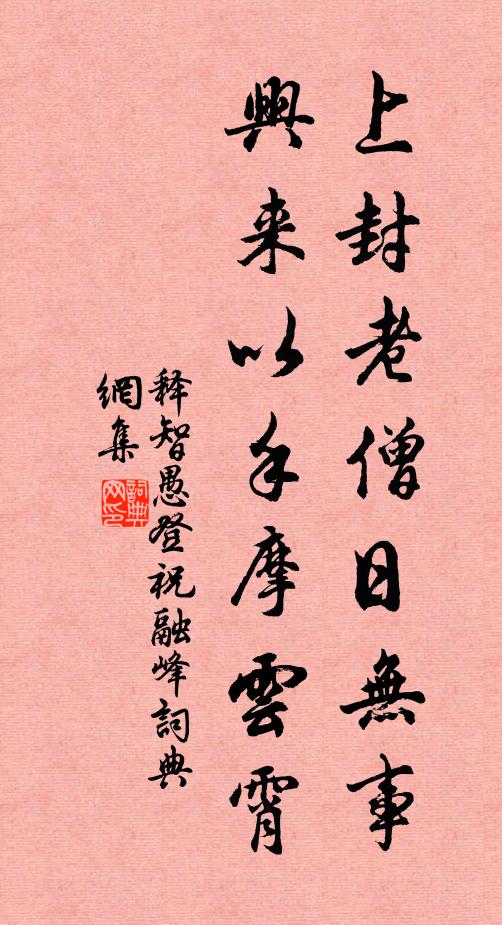 上封老僧日無事
興来以手摩雲霄
释智愚登祝融峰詞典
網集
詞典網印